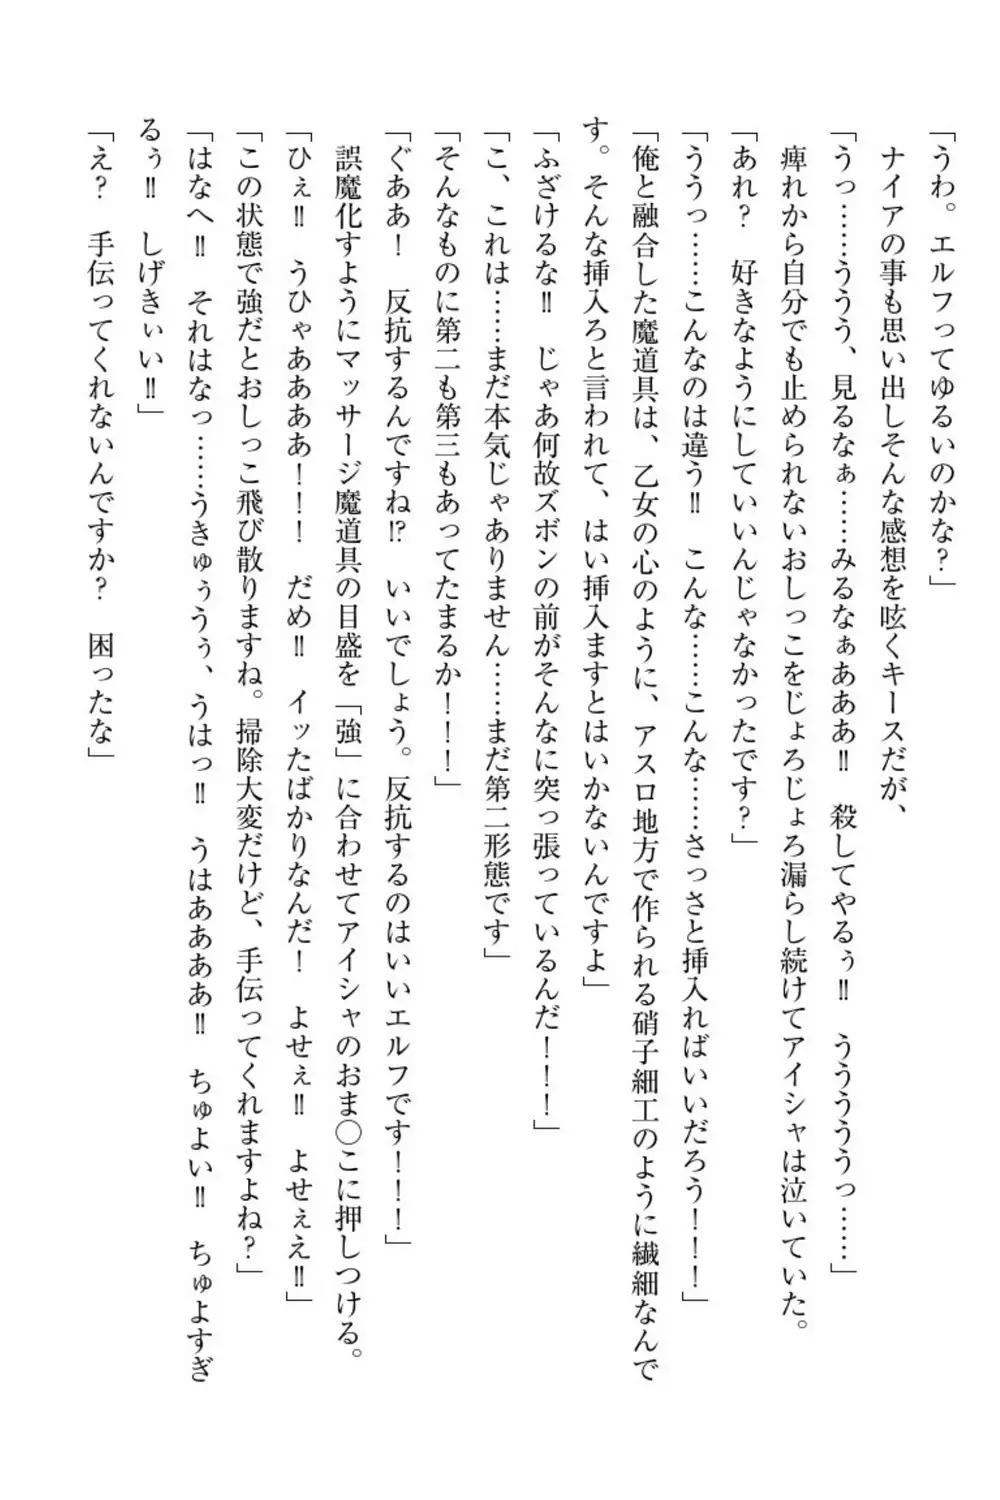 「うわ。エルフってゆるいのかな？」
　ナイアの事も思い出しそんな感想を呟くキースだが、
「うっ……ううう、見るなぁ……みるなぁあああ‼　殺してやるぅ‼　うううううっ……」
　痺れから自分でも止められないおしっこをじょろじょろ漏らし続けてアイシャは泣いていた。
「あれ？　好きなようにしていいんじゃなかったです？」
「ううっ……こんなのは違う‼　こんな……こんな……さっさと挿入ればいいだろう！！！」
「俺と融合した魔道具は、乙女の心のように、アスロ地方で作られる硝子細工のように繊細なんで
す。そんな挿入ろと言われて、はい挿入ますとはいかないんですよ」
「ふざけるな‼　じゃあ何故ズボンの前がそんなに突っ張っているんだ！！！」
「こ、これは……まだ本気じゃありません……まだ第二形態です」
「そんなものに第二も第三もあってたまるか！！！」
「ぐああ！　反抗するんですね⁉　いいでしょう。反抗するのはいいエルフです！！！」
　誤魔化すようにマッサージ魔道具の目盛を「強」に合わせてアイシャのおま〇こに押しつける。
「ひぇ‼　うひゃああああ！！！　だめ‼　イッたばかりなんだ！　よせぇ‼　よせぇえ‼」
「この状態で強だとおしっこ飛び散りますね。掃除大変だけど、手伝ってくれますよね？」
「はなへ‼　それはなっ……うきゅぅうぅ、うはっ‼　うはあああ‼　ちゅよい‼　ちゅよすぎ
るぅ‼　しげきぃい‼」
「え？　手伝ってくれないんですか？　困ったな」